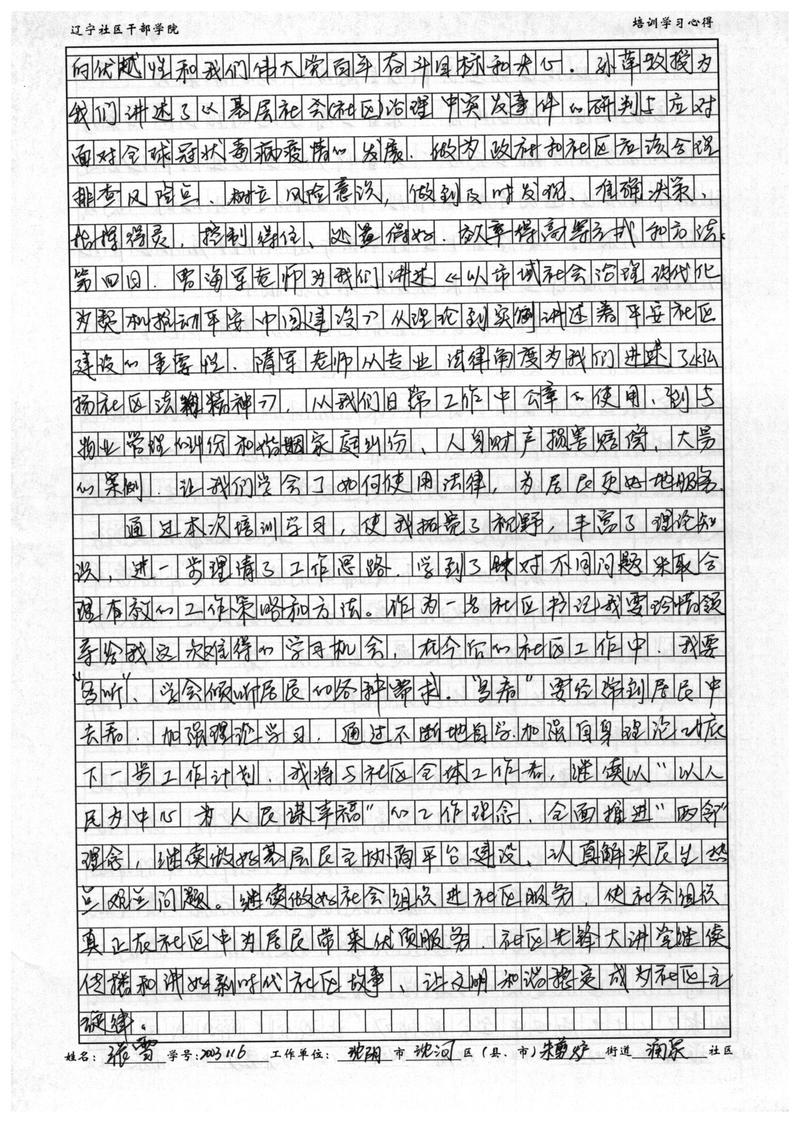 辽宁社区干部学院 培训学习心得
的优越性和我们伟大党百年奋斗目标和决心。孙萍教授为
我们讲述了《基层社会(社区)治理中突发事件的研判与应对
面对全球冠状毒病疫情的发展。做为政府和社区应该合理
排查风险点、树立风险意识，做到及时发现、准确决策、
指挥得灵，控制得住、处置得好、效率得高等方式和方法。
第四日．曹海军老师为我们讲述《以市域社会治理现代化
为契机推动平安中国建设》从理论到实例讲述着平安社区
建设的重要性．隋军老师从专业法律角度为我们讲述了《弘
扬社区法精神》，从我们日常工作中公章的使用、到与
物业管理的纠纷和婚姻家庭纠纷、人身财产损害赔偿，大量
的案例．让我们学会了如何使用法律，为居民更好地服务
通过本次培训学习，使我拓宽了视野，丰富了理论知
识，进一步理清了工作思路．学到了对不同问题采取合
理有效的工作策略和方法。作为一名社区书记我要珍惜领
导给我这次难得的学习机会，在今后的社区工作中，我要
“多听”、学会倾听居民的各种需求，“多看”要经常到居民中
去看．加强理论学习，通过不断地自学加强自身理论功底
下一步工作计划，我将与社区全体工作者，继续以“以人
民为中心 为人民谋幸福”的工作理念．全面推进“两邻”
理念，继续做好基层民主协商平台建设、认真解决民生热
点难点问题。继续做好社会组织进社区服务，使社会组织
真正在社区中为居民带来优质服务 社区先锋大讲堂继续
传播和讲好新时代社区故事、让文明和谐稳定成为社区主
旋律。
姓名：张雪 学号：2023116 工作单位：沈阳市沈河区（县、市）朱剪炉街道润泉社区